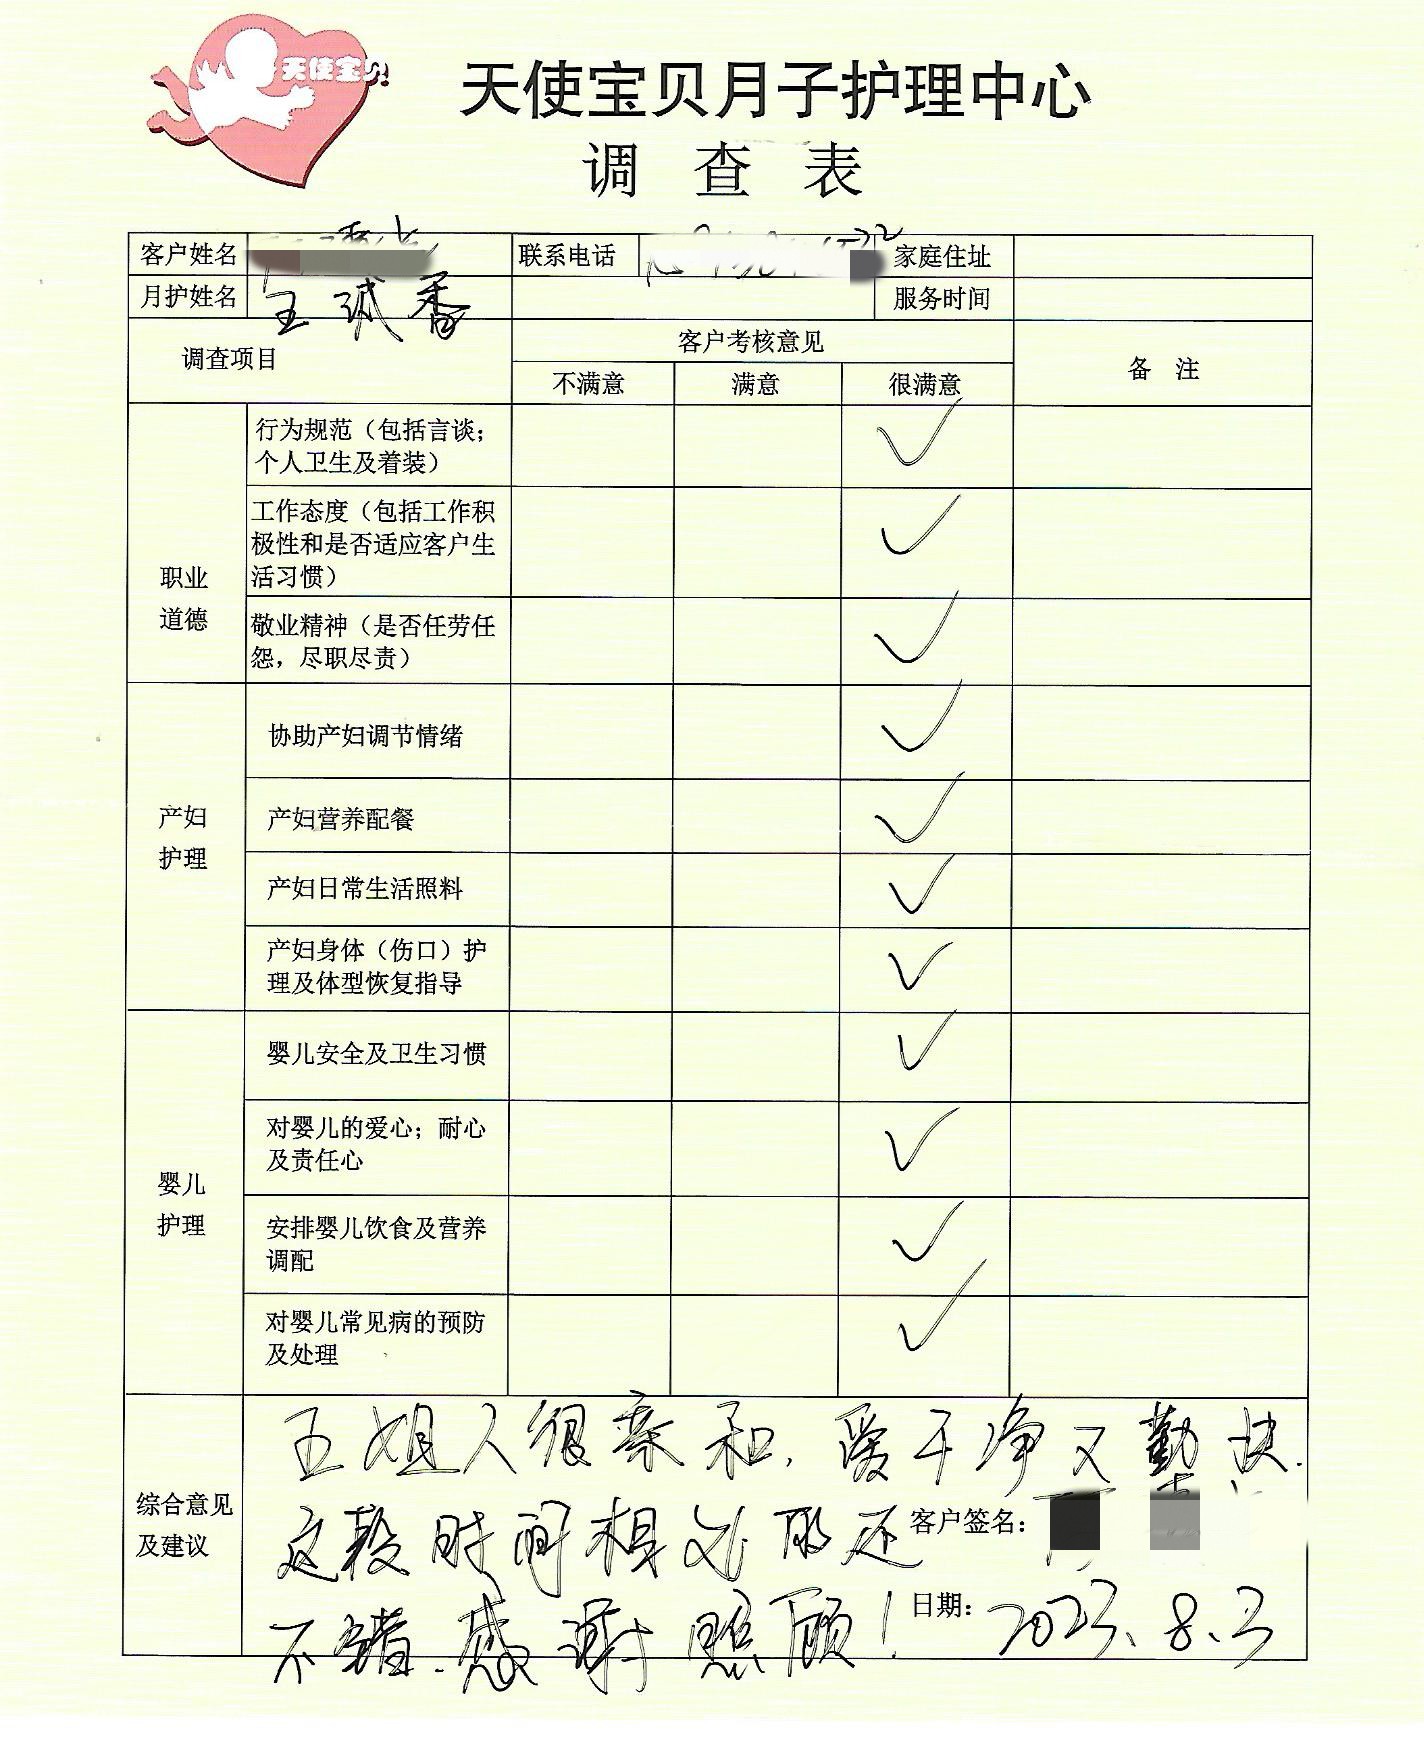 天使宝贝
天使宝贝月子护理中心
调查表
客户姓名 联系电话 家庭住址
月护姓名 王诚香 服务时间
调查项目 客户考核意见 备注
不满意 满意 很满意
职业
道德
行为规范（包括言谈；
个人卫生及着装） ✓
工作态度（包括工作积
极性和是否适应客户生
活习惯） ✓
敬业精神（是否任劳任
怨，尽职尽责） ✓
产妇
护理
协助产妇调节情绪 ✓
产妇营养配餐 ✓
产妇日常生活照料 ✓
产妇身体（伤口）护
理及体型恢复指导 ✓
婴儿
护理
婴儿安全及卫生习惯 ✓
对婴儿的爱心；耐心
及责任心 ✓
安排婴儿饮食及营养
调配 ✓
对婴儿常见病的预防
及处理 ✓
综合意见
及建议
王姐人很亲和，爱干净又勤快.
这段时间相处的还
不错.感谢照顾！
客户签名：
日期：2023.8.3